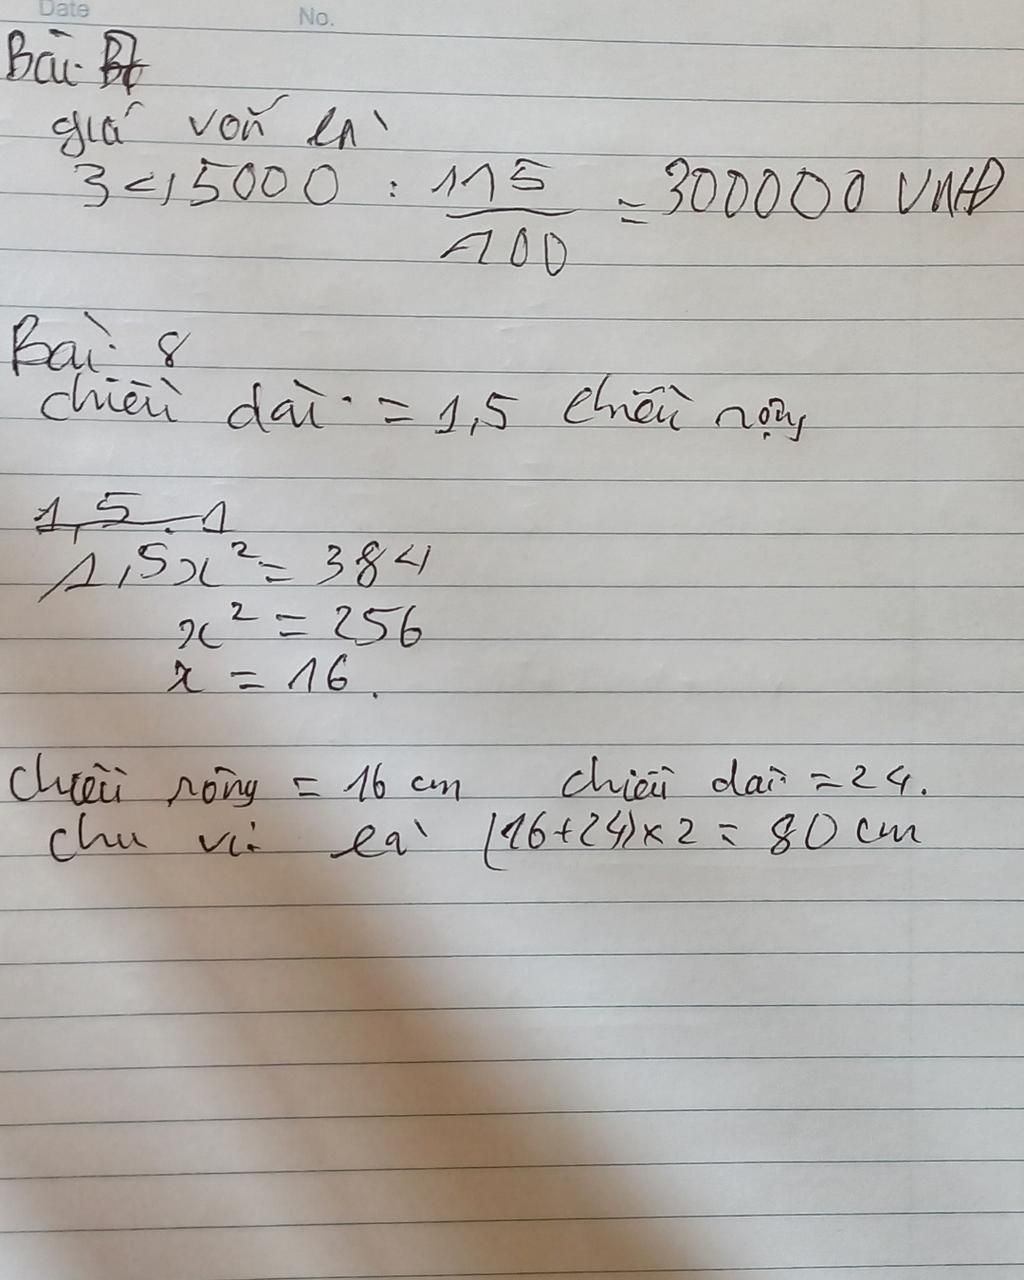 Date No.
Bài 7
giá vốn là
345000 : 115/100 = 300000 VNĐ
Bài 8
chiều dài = 1,5 chiều rộng
1,5 . 1
1,5x² = 384
x² = 256
x = 16.
chiều rộng = 16 cm chiều dài = 24.
chu vi là (16+24)×2 = 80 cm